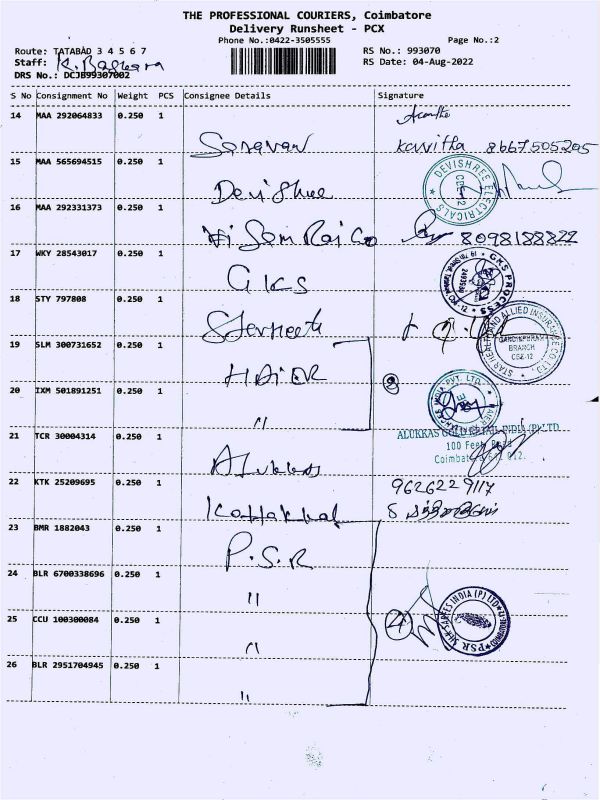 THE PROFESSIONAL COURIERS, Coimbatore
Delivery Runsheet - PCX
Phone No.:0422-3505555
Page No.:2
Route: TATABAD 3 4 5 6 7
RS No.: 993070
Staff: K. Baskara
RS Date: 04-Aug-2022
DRS No.: DCJB99307002
S No Consignment No Weight PCS Consignee Details Signature
14 MAA 292064833 0.250 1
Saravan Kavitha 8667505205
15 MAA 565694515 0.250 1
Devi Shree DEVISHREE ELECTRICALS
16 MAA 292331373 0.250 1
8098188822
17 WKY 28543017 0.250 1
GKS GKS PROCESS
18 STY 797808 0.250 1
STAR HEALTH AND ALLIED INSURANCE CO. LTD.
BRANCH
CBE-12
19 SLM 300731652 0.250 1
HAIER 2
20 IXM 501891251 0.250 1
"
21 TCR 30004314 0.250 1
ALUKKAS GOLD RETAIL INDIA (P) LTD
100 Feet Road
Alukkas
22 KTK 25209695 0.250 1
9626229117
Kottakkal
23 BMR 1882043 0.250 1
P.S.R
24 BLR 6700338696 0.250 1
"
25 CCU 100300084 0.250 1
" 4 PSR SILK SAREES INDIA (P) LTD
26 BLR 2951704945 0.250 1
"